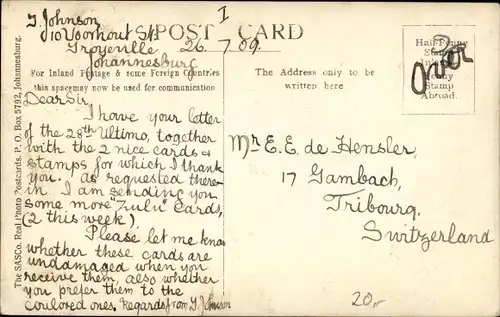 I
J. Johnson
10 Voorhout St
Troyeville
Johannesburg
POST CARD
26.7.09.
Half-Penny
Stamp
Penny
Stamp
Abroad.
over
For Inland Postage & some Foreign Countries
this space may now be used for communication
The Address only to be
written here
The SASCo. Real Photo Postcards. P. O. Box 5792, Johannesburg.
Dear Sir
I have your letter
of the 28th Ultimo, together
with the 2 nice cards &
stamps for which I thank
you. As requested there-
in I am sending you
some more "Zulu" Cards,
(2 this week)
Please let me know
whether these cards are
undamaged when you
receive them, also whether
you prefer them to the
coulored ones, Regards from J. Johnson
Mr E. E. de Hensler,
17 Gambach,
Fribourg,
Switzerland
20,-